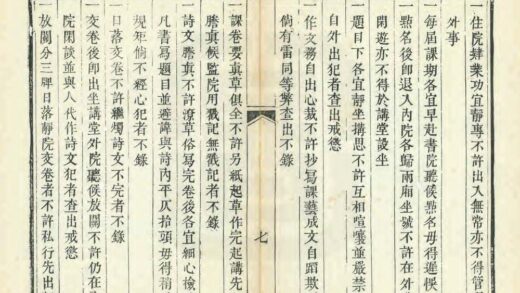 一住院肄業功宜靜專不許出入無常亦不得管
外事
一每屆課期各宜早赴書院聽候點名毋得遲悞
一點名後即退入內院各歸兩廂坐號不許在外
閒遊亦不得於講堂設坐
一題目下各宜靜坐搆思不許互相喧嚷並嚴禁
自外出犯者查出戒懲
一作文務自出心裁不許抄寫課藝成文自蹈欺
倘有雷同等弊查出不錄
七
一課卷要真草俱全不許另紙起草作完起講先
謄真候監院用戳記無戳記者不錄
一詩文謄真不許潦草俗寫完卷後各宜細心檢
凡書寫題目並避諱與詩內平仄抬頭毋得稍
規矩倘不經心犯者不錄
一日落交卷不許繼燭詩文不完者不錄
一交卷後即出坐講堂外院聽候放關不許仍在
院閒談並與人代作詩文犯者查出戒懲
一放關分三牌日落靜院交卷者不許私行先出